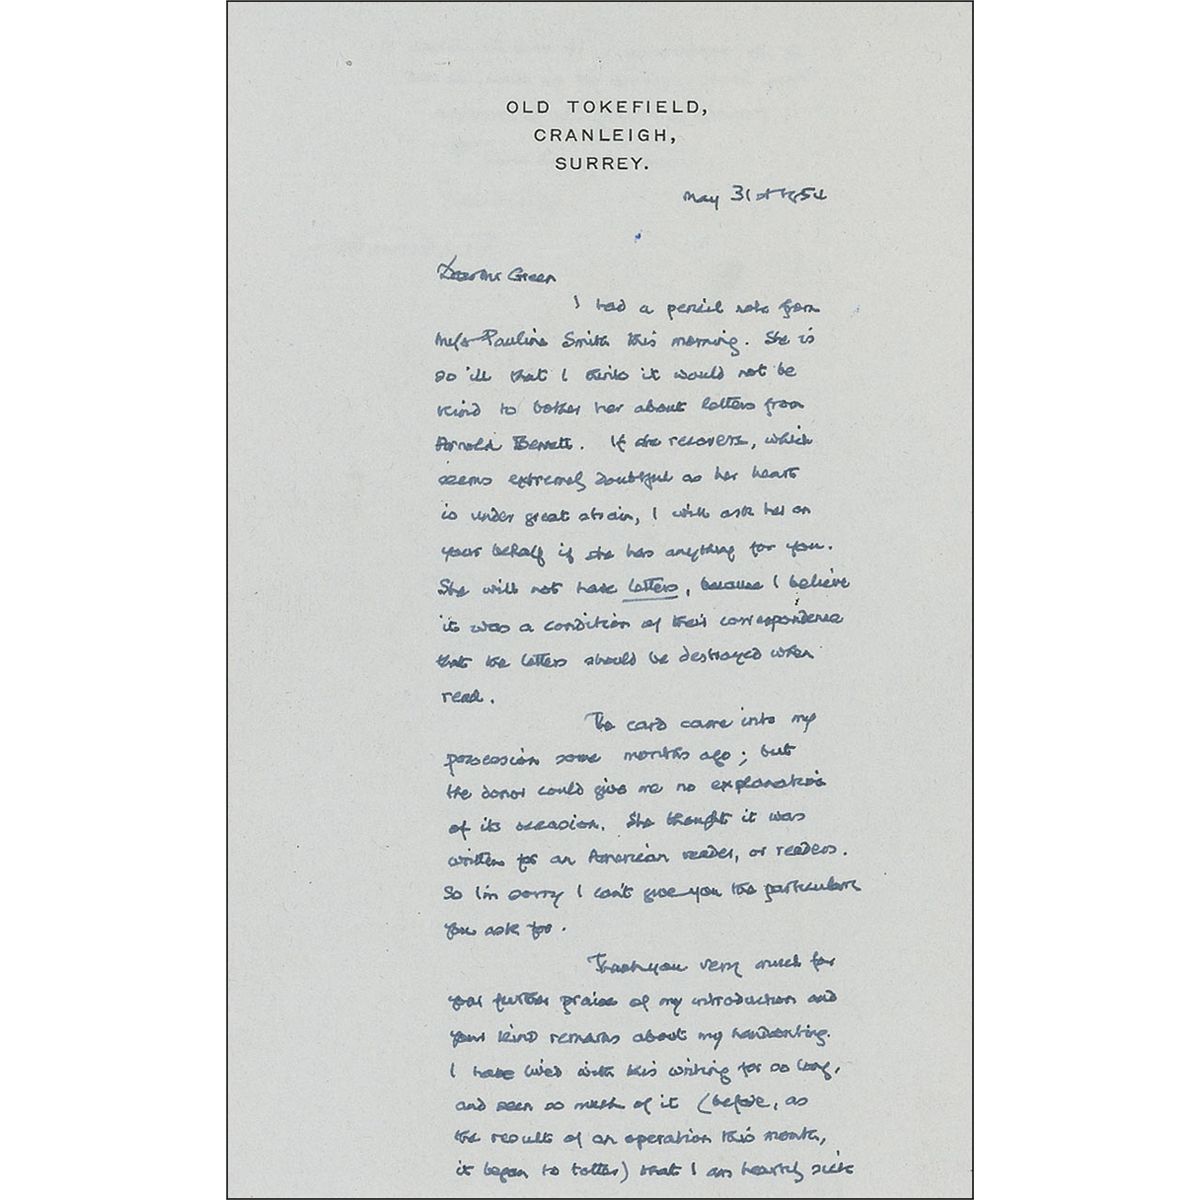 OLD TOKEFIELD,
CRANLEIGH,
SURREY.
May 31st 1954
Dear Mr Green
I had a pencil note from
Miss Pauline Smith this morning. She is
so ill that I think it would not be
kind to bother her about letters from
Arnold Bennett. If she recovers, which
seems extremely doubtful as her heart
is under great strain, I will ask her on
your behalf if she has anything for you.
She will not have letters, because I believe
it was a condition of their correspondence
that the letters should be destroyed when
read.
The card came into my
possession some months ago; but
the donor could give me no explanation
of its occasion. She thought it was
written for an American reader, or readers.
So I'm sorry I can't give you the particulars
you ask for.
Thank you very much for
your further praise of my introduction and
your kind remarks about my handwriting.
I have lived with this writing for so long,
and seen so much of it (before, as
the result of an operation this month,
it began to totter) that I am heartily sick